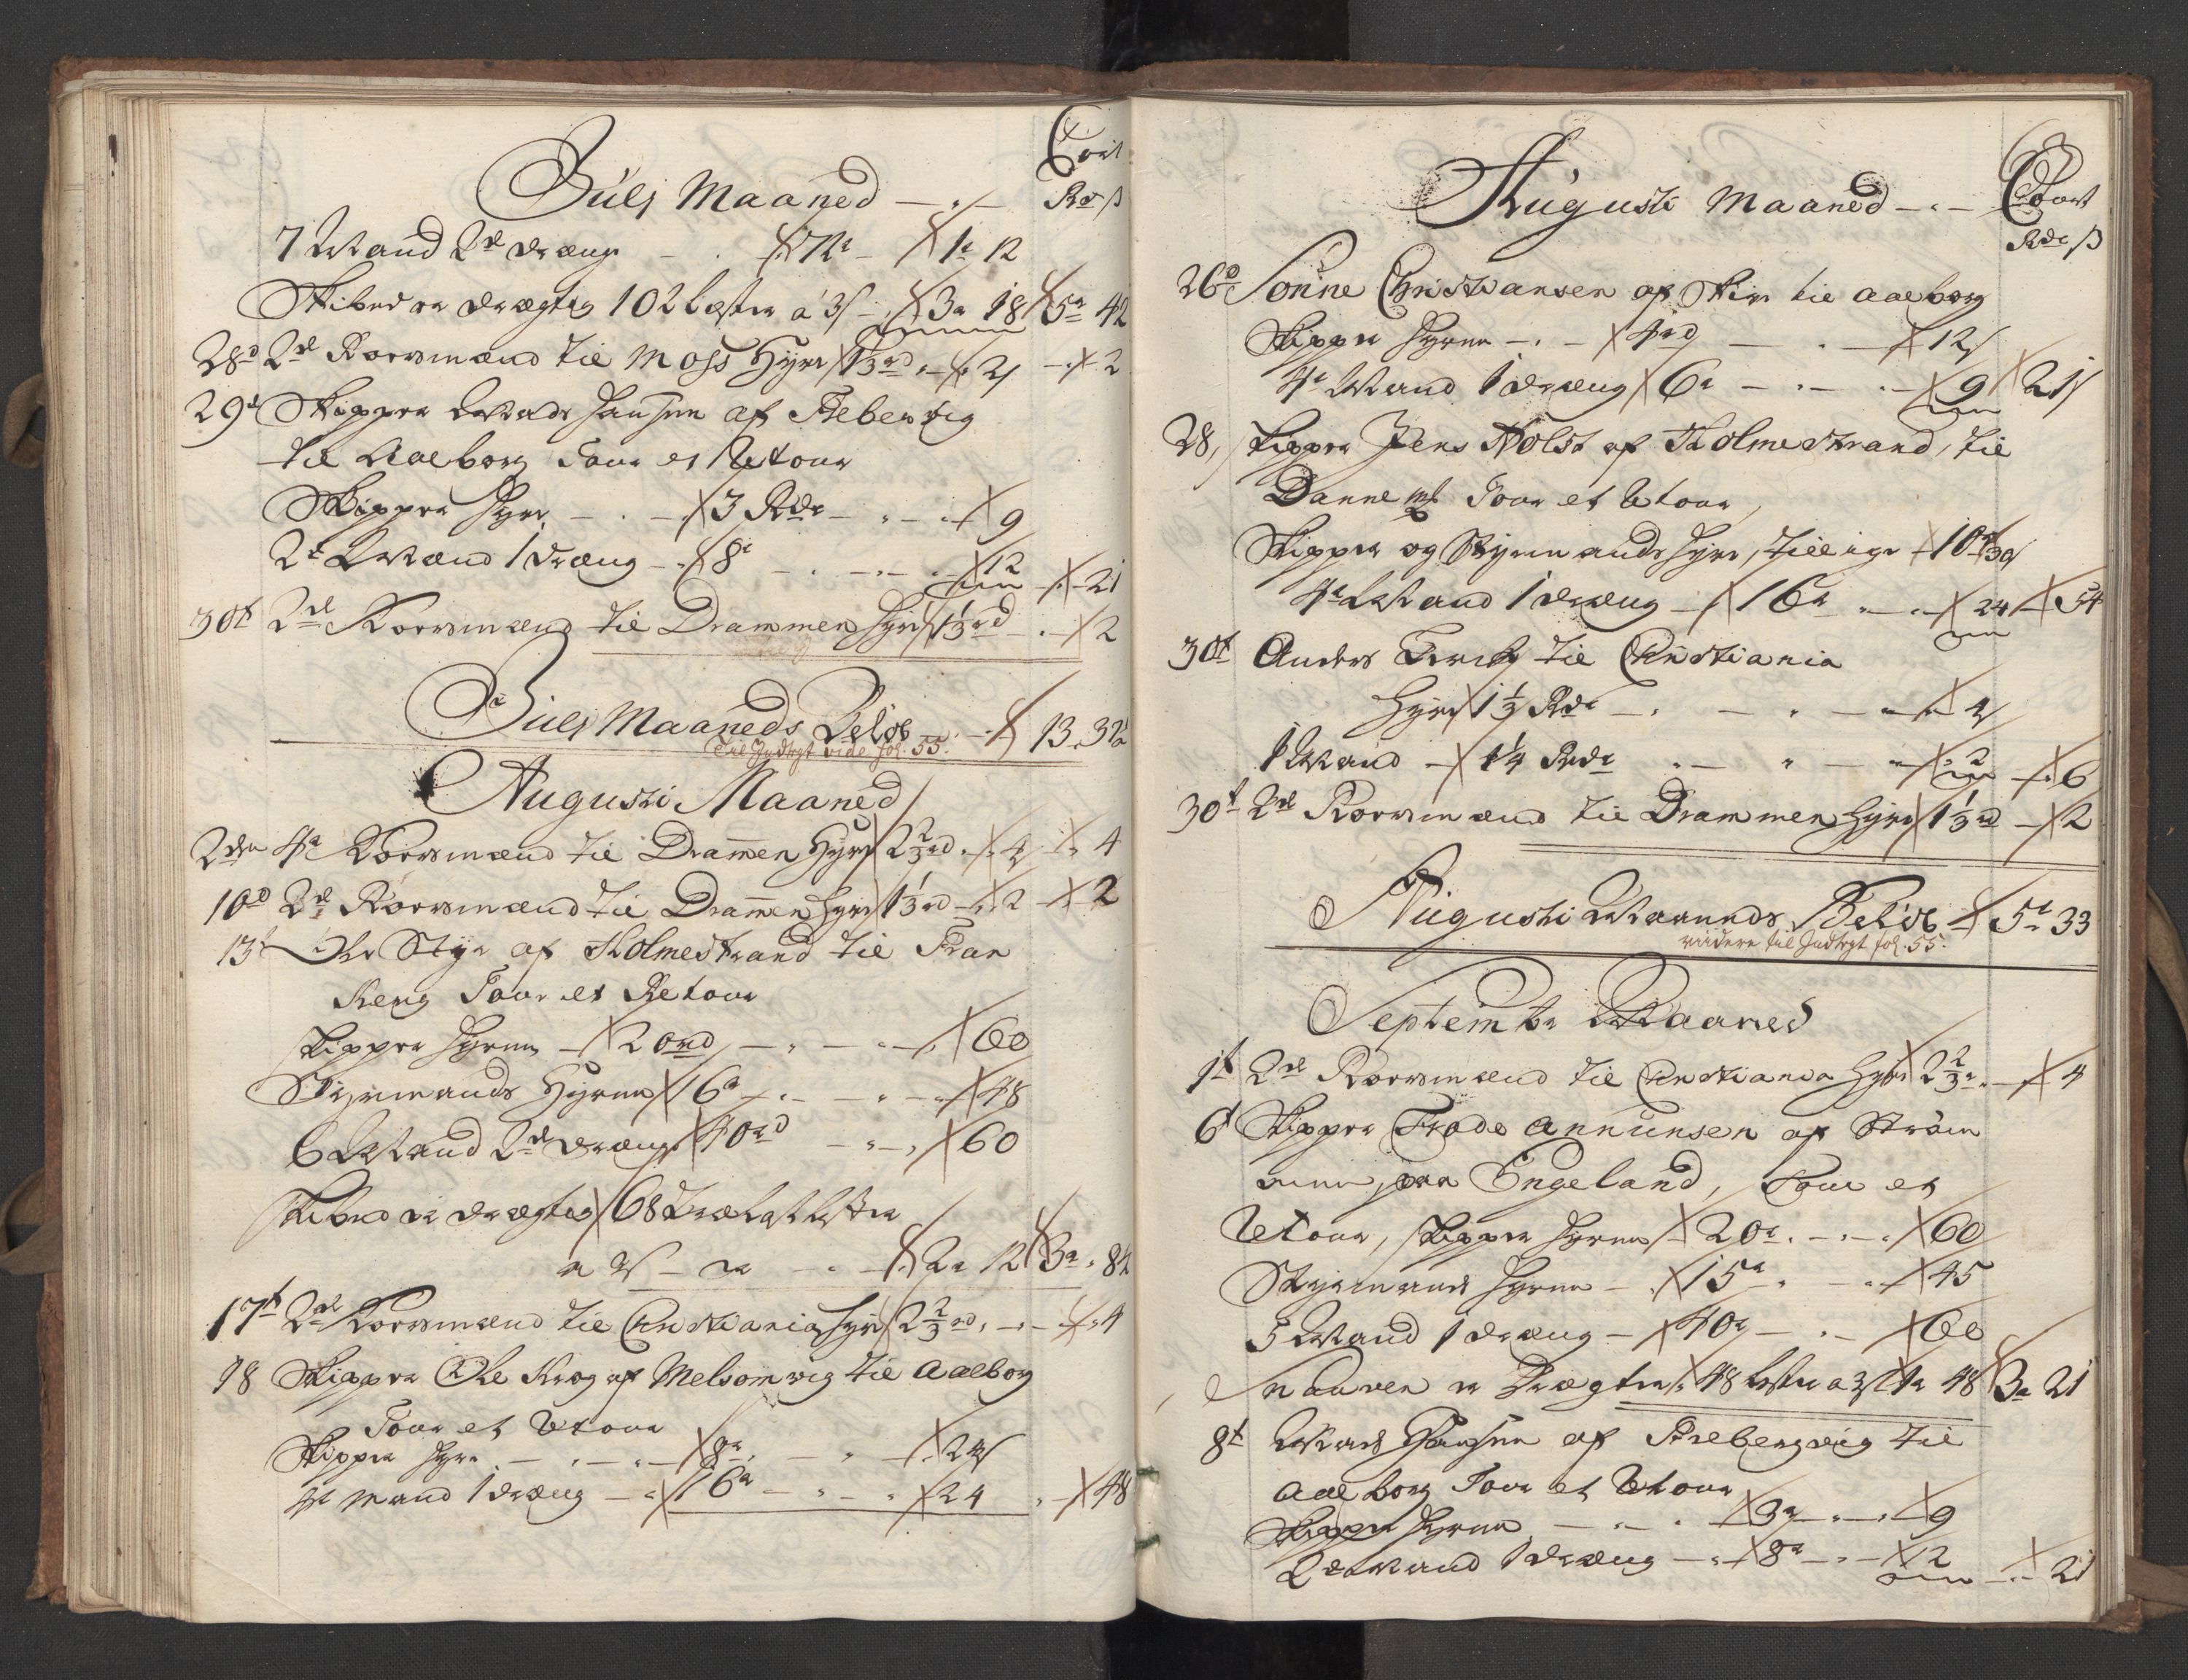 Cort
Julj Maaned
Rd ß
7 Mand 2de dreng 72r 1r 12
Skibet er drægtig 102 læster a 3ß 3r 18 5r 42
28d 2de Roersmænd til Moss Hyre 1⅓ rd 2ß 2
29t Skipper Mads Hansen af Flebervig
til Aalborg Tour et Retour
Skipper Hyre 3 Rdr 9
2de Mand 1 dreng 8r 12 21
30t 2de Roersmænd til Drammen Hyre 1⅓ rd 2
Julj Maaneds Beløb 13. 32
Til Indtegt vide fol. 55.
Augusti Maaned
2den 4re Roersmænd til Drammen Hyre 2⅔ rd 4 4
10d 2de Roersmænd til Drammen Hyre 1⅓ rd 2 2
13t Ole Styr af Holmestrand til Fran
kerig Tour et Retour
skipper Hyren 20 rd 60
Styrmands Hyren 16r 48
6 Mand 2de dreng 40 rd 60
skibet er drægtig 68 Træelast læster
a 3ß er 2r 12 3r 84
17t 2de Roersmænd til Christiania Hyre 2⅔ rd 4
18 Skipper Ole Krog af Melsomvig til Aalborg
Tour et Retour
Skipper Hyre 8r 24ß
4re Mand 1 dreng 16r 24 48
Augusti Maaned Cort
Rdr ß
26d Sønne Christiansen af Skien til Aalborg
Skipper Hyren 4 rd 12ß
4re Mand 1 dreng 6r 9 21ß
28, skipper Jens Holst af Holmestrand, til
Dannemk Tour et Retour
Skipper og Styrmands Hyre, tillige 10rd 30ß
4re Mand 1 dreng 16r 24 54
30t Anders til Christiania
Hyre 1⅓ Rdr 4ß
1 Mand 1¼ Rdr 2 6
30t 2de Roersmænd til Drammen Hyre 1⅓ rd 2
Augusti Maaneds Beløb 5r 33
viidere til Indtegt fol. 55.
September Maaned
1t 2de Roersmænd til Christiania Hyre 2⅔r 4
6t Skipper Frode Annunsen af Strøm
men, paa Engeland, Tour et
Retour, skipper Hyren 20r 60
Styrmands Hyren 15r 45
5 Mand 1 dreng 40r 60
er Drægtig 48 læster a 3ß 1r 48 3r 21
8t Mads Hansen af Flebergvig til
Aalborg Tour et Retour
Skipper Hyren 3r 9
2de Mand 1 dreng 8r 12 21